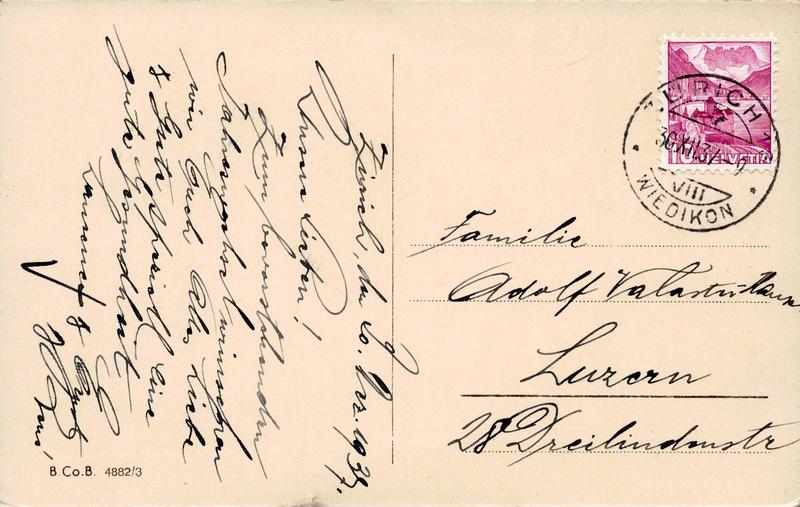 Zürich, den 30. Dez. 1937.
Unsere Lieben!
Zum bevorstehenden
Jahreswechsel wünschen
wir Euch Alles Liebe
& Gute speziell eine
gute Gesundheit
&
B.Co.B. 4882/3
ZÜRICH
30.XII.37
HELVETIA
VIII
WIEDIKON
Familie
Adolf
Luzern
28 Dreilindenstr